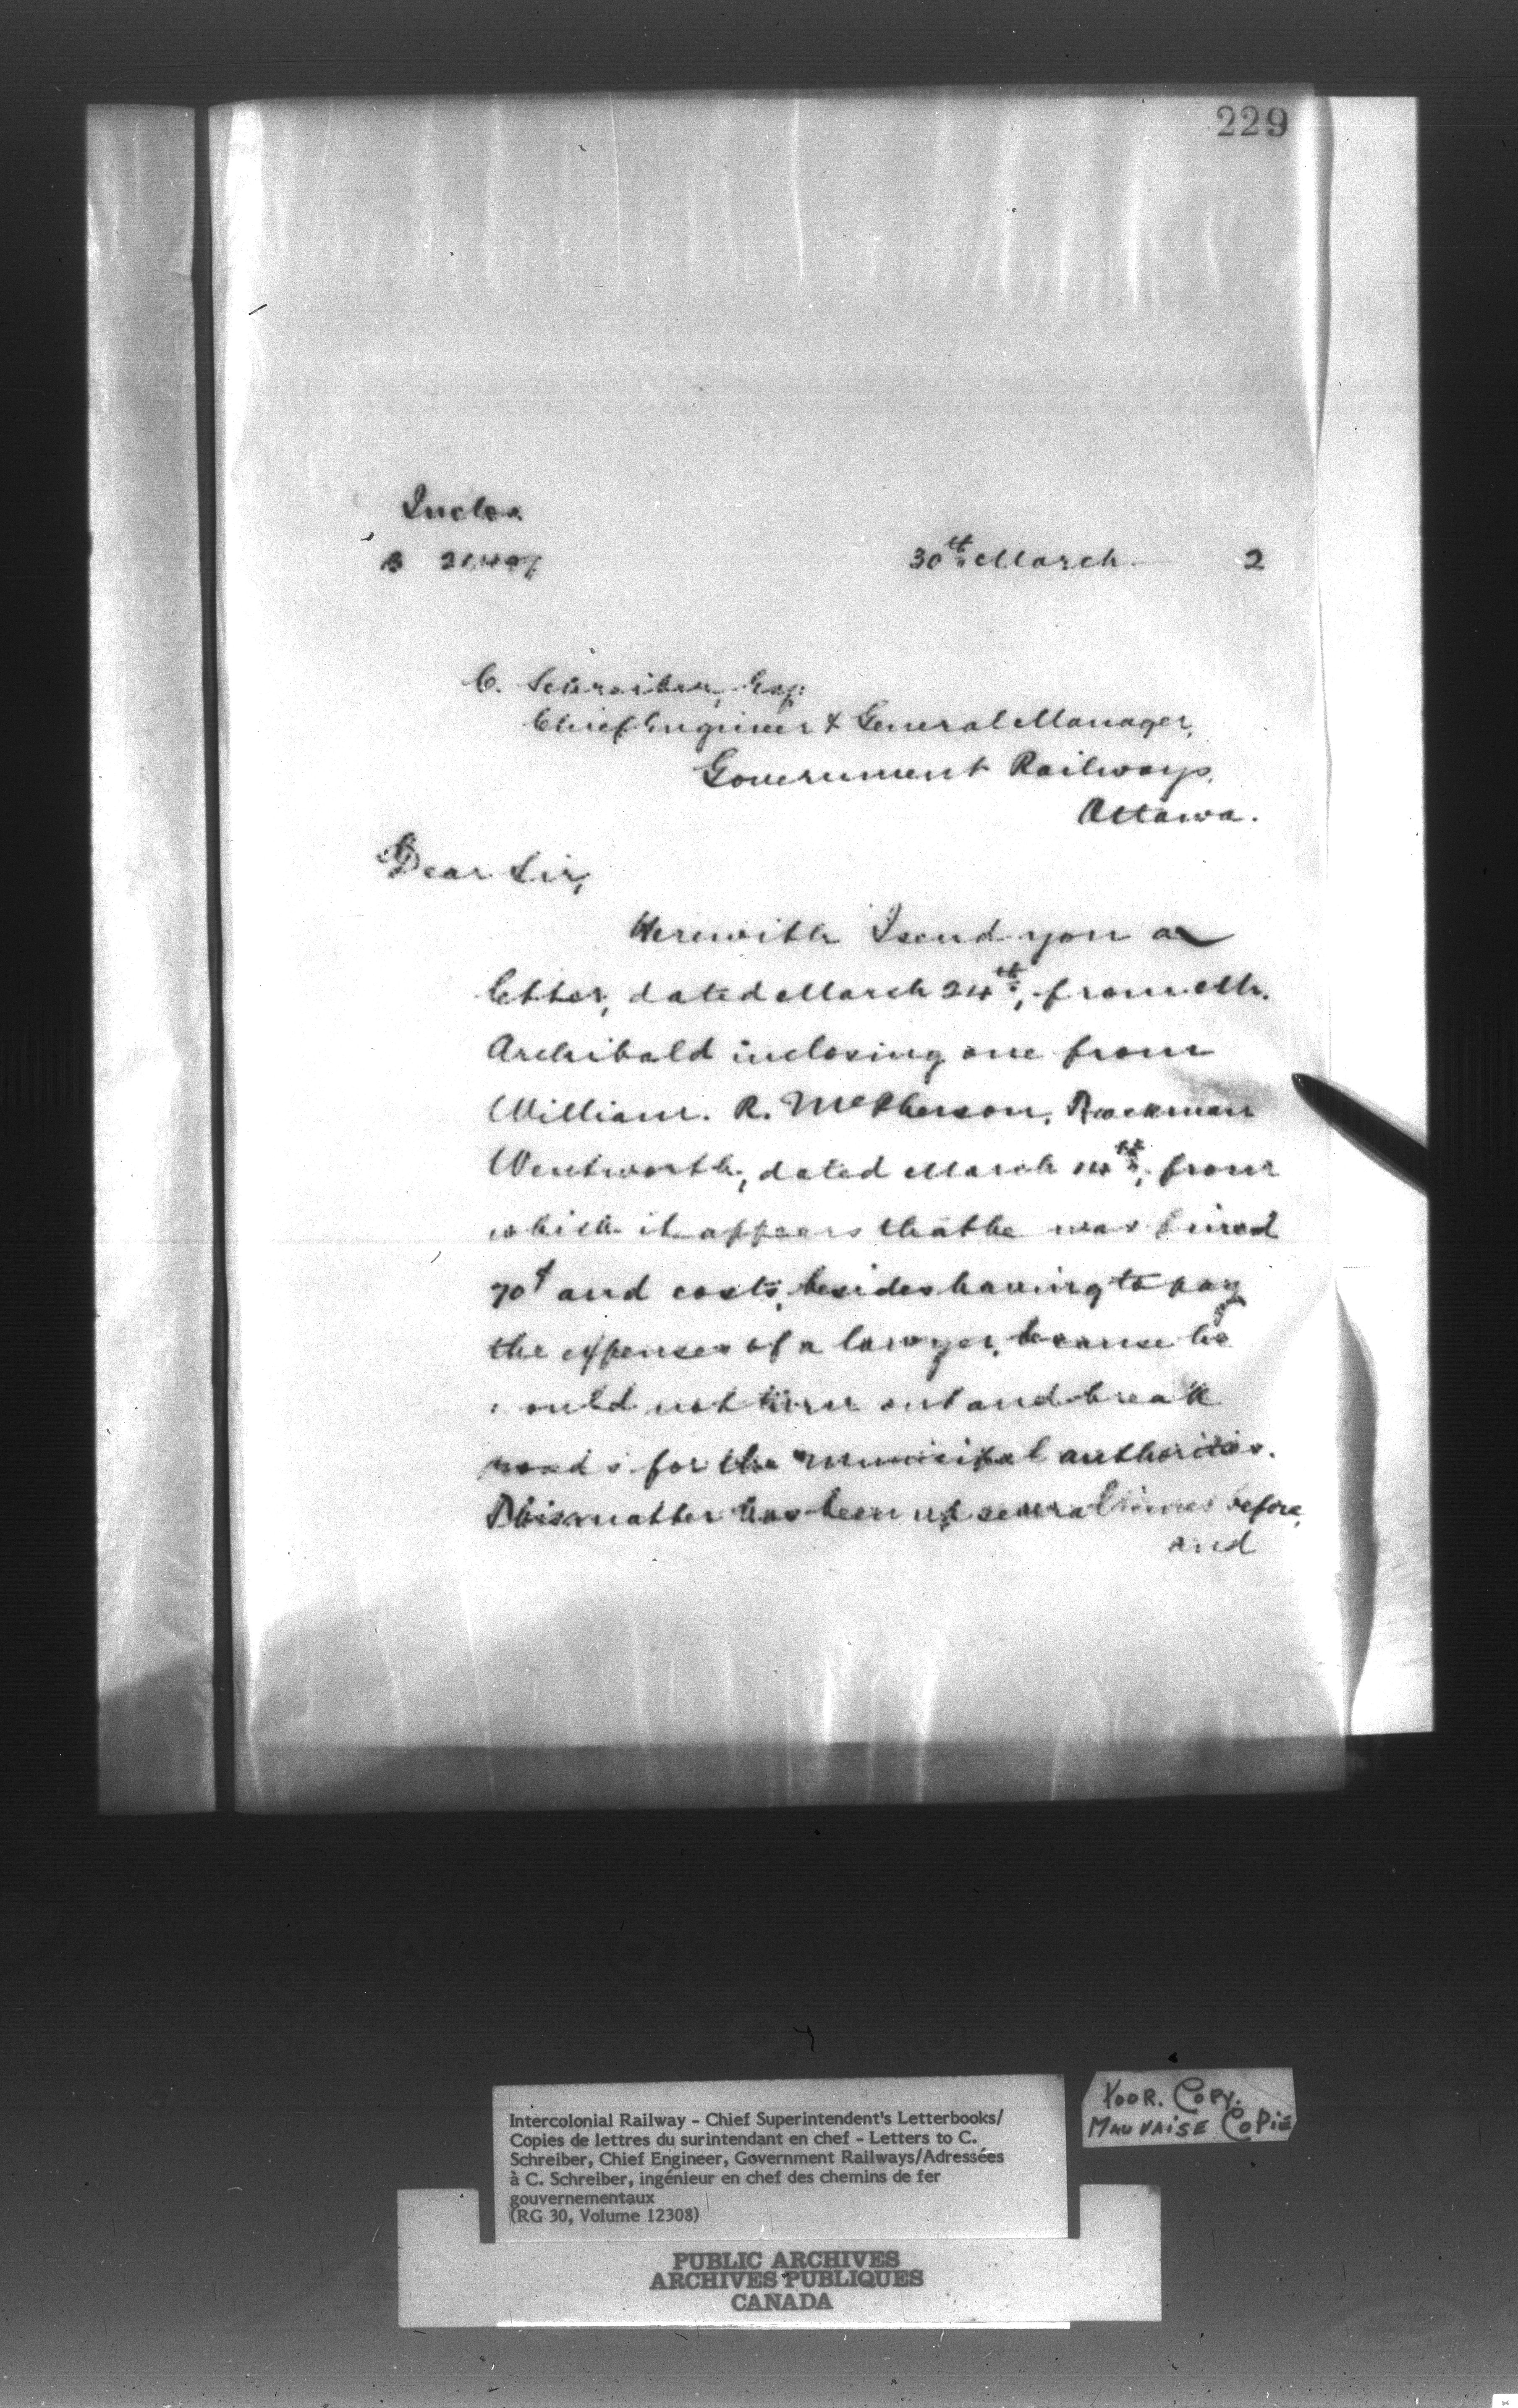 229
Inclo.
30th March 2
C. Schreiber, Esq:
Chief Engineer & General Manager,
Government Railways,
Ottawa.
Dear Sir,
Herewith I send you a
letter, dated March 24th, from Mr.
Archibald inclosing one from
William. R. McPherson, Trackman
Wentworth, dated March 14th, from
which it appears that he was fined
70¢ and costs, besides having to pay
the expenses of a lawyer, because he
could not turn out and break
roads for the municipal authorities.
This matter has been up several times before,
and
POOR. COPY.
MAUVAISE COPIE
Intercolonial Railway - Chief Superintendent's Letterbooks/
Copies de lettres du surintendant en chef - Letters to C.
Schreiber, Chief Engineer, Government Railways/Adressées
à C. Schreiber, ingénieur en chef des chemins de fer
gouvernementaux
(RG 30, Volume 12308)
PUBLIC ARCHIVES
ARCHIVES PUBLIQUES
CANADA